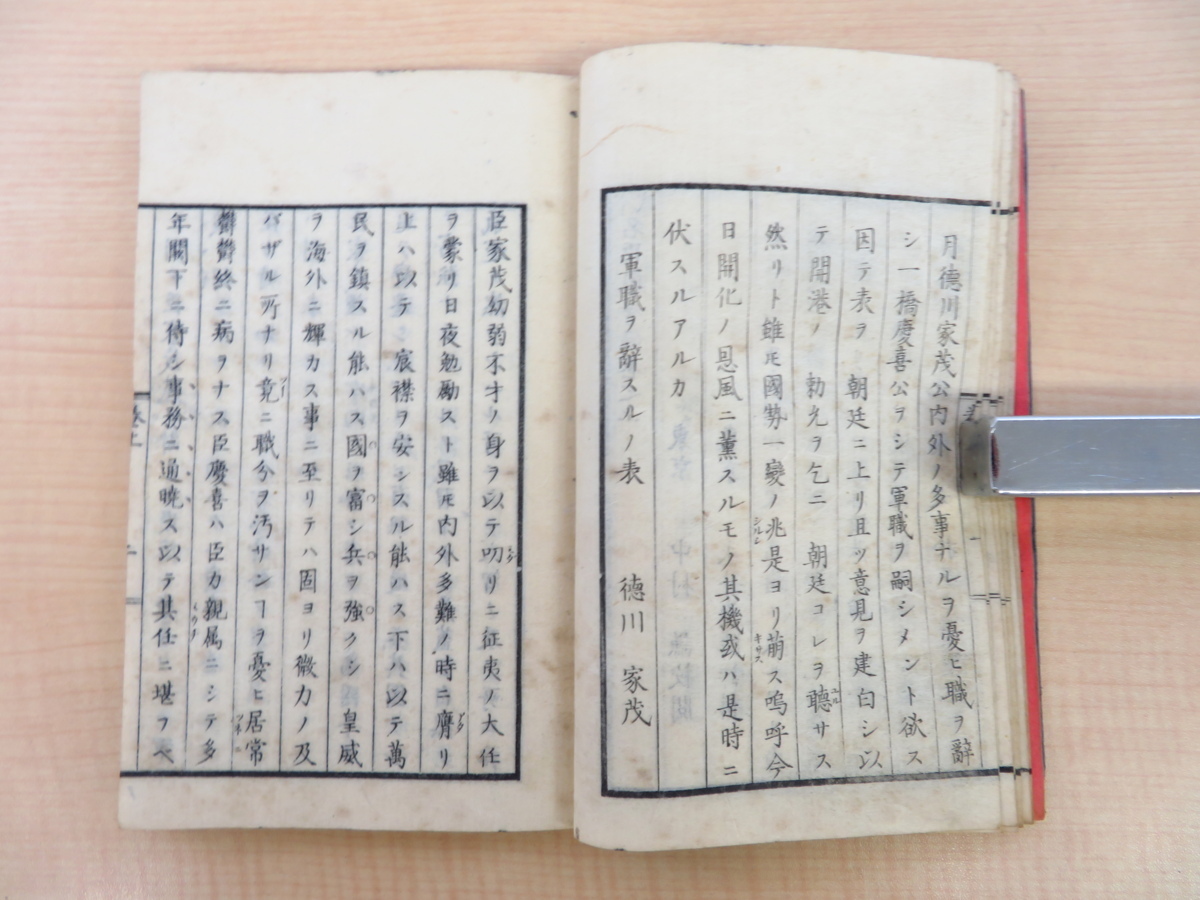 月德川家茂公内外ノ多事ナルヲ憂ヒ職ヲ辭
シ一橋慶喜公ヲシテ軍職ヲ嗣シメント欲ス
因テ表ヲ 朝廷ニ上リ且ツ意見ヲ建白シ以
テ開港ノ 勅允ヲ乞ニ 朝廷コレヲ聴サス
然リト雖モ國勢一變ノ兆是ヨリ萠ス嗚呼今
日開化ノ恩風ニ薫スルモノ其機或ハ是時ニ
伏スルアルカ
軍職ヲ辭スルノ表 德川 家茂
臣家茂幼弱不才ノ身ヲ以テ叨リニ征夷ノ大任
ヲ蒙リ日夜勉励スト雖モ内外多難ノ時ニ膺リ
上ハ以テ 宸襟ヲ安シスル能ハス下ハ以テ萬
民ヲ鎮スル能ハス國ヲ富シ兵ヲ強クシ 皇威
ヲ海外ニ輝カス事ニ至リテハ固ヨリ微力ノ及
バザル所ナリ竟ニ職分ヲ汚サンヿヲ憂ヒ居常
欝欝終ニ病ヲナス臣慶喜ハ臣カ親属ニシテ多
年闕下ニ侍シ事務ニ通曉ス以テ其任ニ堪フベ